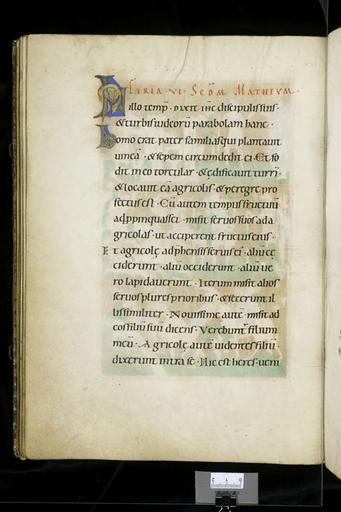 FERIA · VI · Scdm MATHEVM ·
In illo temp̄ · Dixit ihc discipulis suis ·
& turbis iudeorū parabolam hanc ·
homo erat pater familias qui plantauit
uineā · & sepem circumdedit ei · Et fo
dit in eo torcular · & edificauit turrī ·
& locauit eā agricolis · & peregre pro
fectus est · Cū autem tempus fructuū
adpropinquasset · misit seruos suos ad a
gricolas · ut acciperent fructus eius ·
Et agricolę adphensis seruis ei᾽ · aliū ce
ciderunt · aliū occiderunt · aliū ue
ro lapidauerunt · Iterum misit alios
seruos plures prioribus · & fecerunt il
lis similiter · Nouissime autē · misit ad
eos filiū suū dicens · Verebunt᾽ filium
meū · Agricolę autē uidentes filiū ·
dixerunt intra se · Hic est heres · ueni